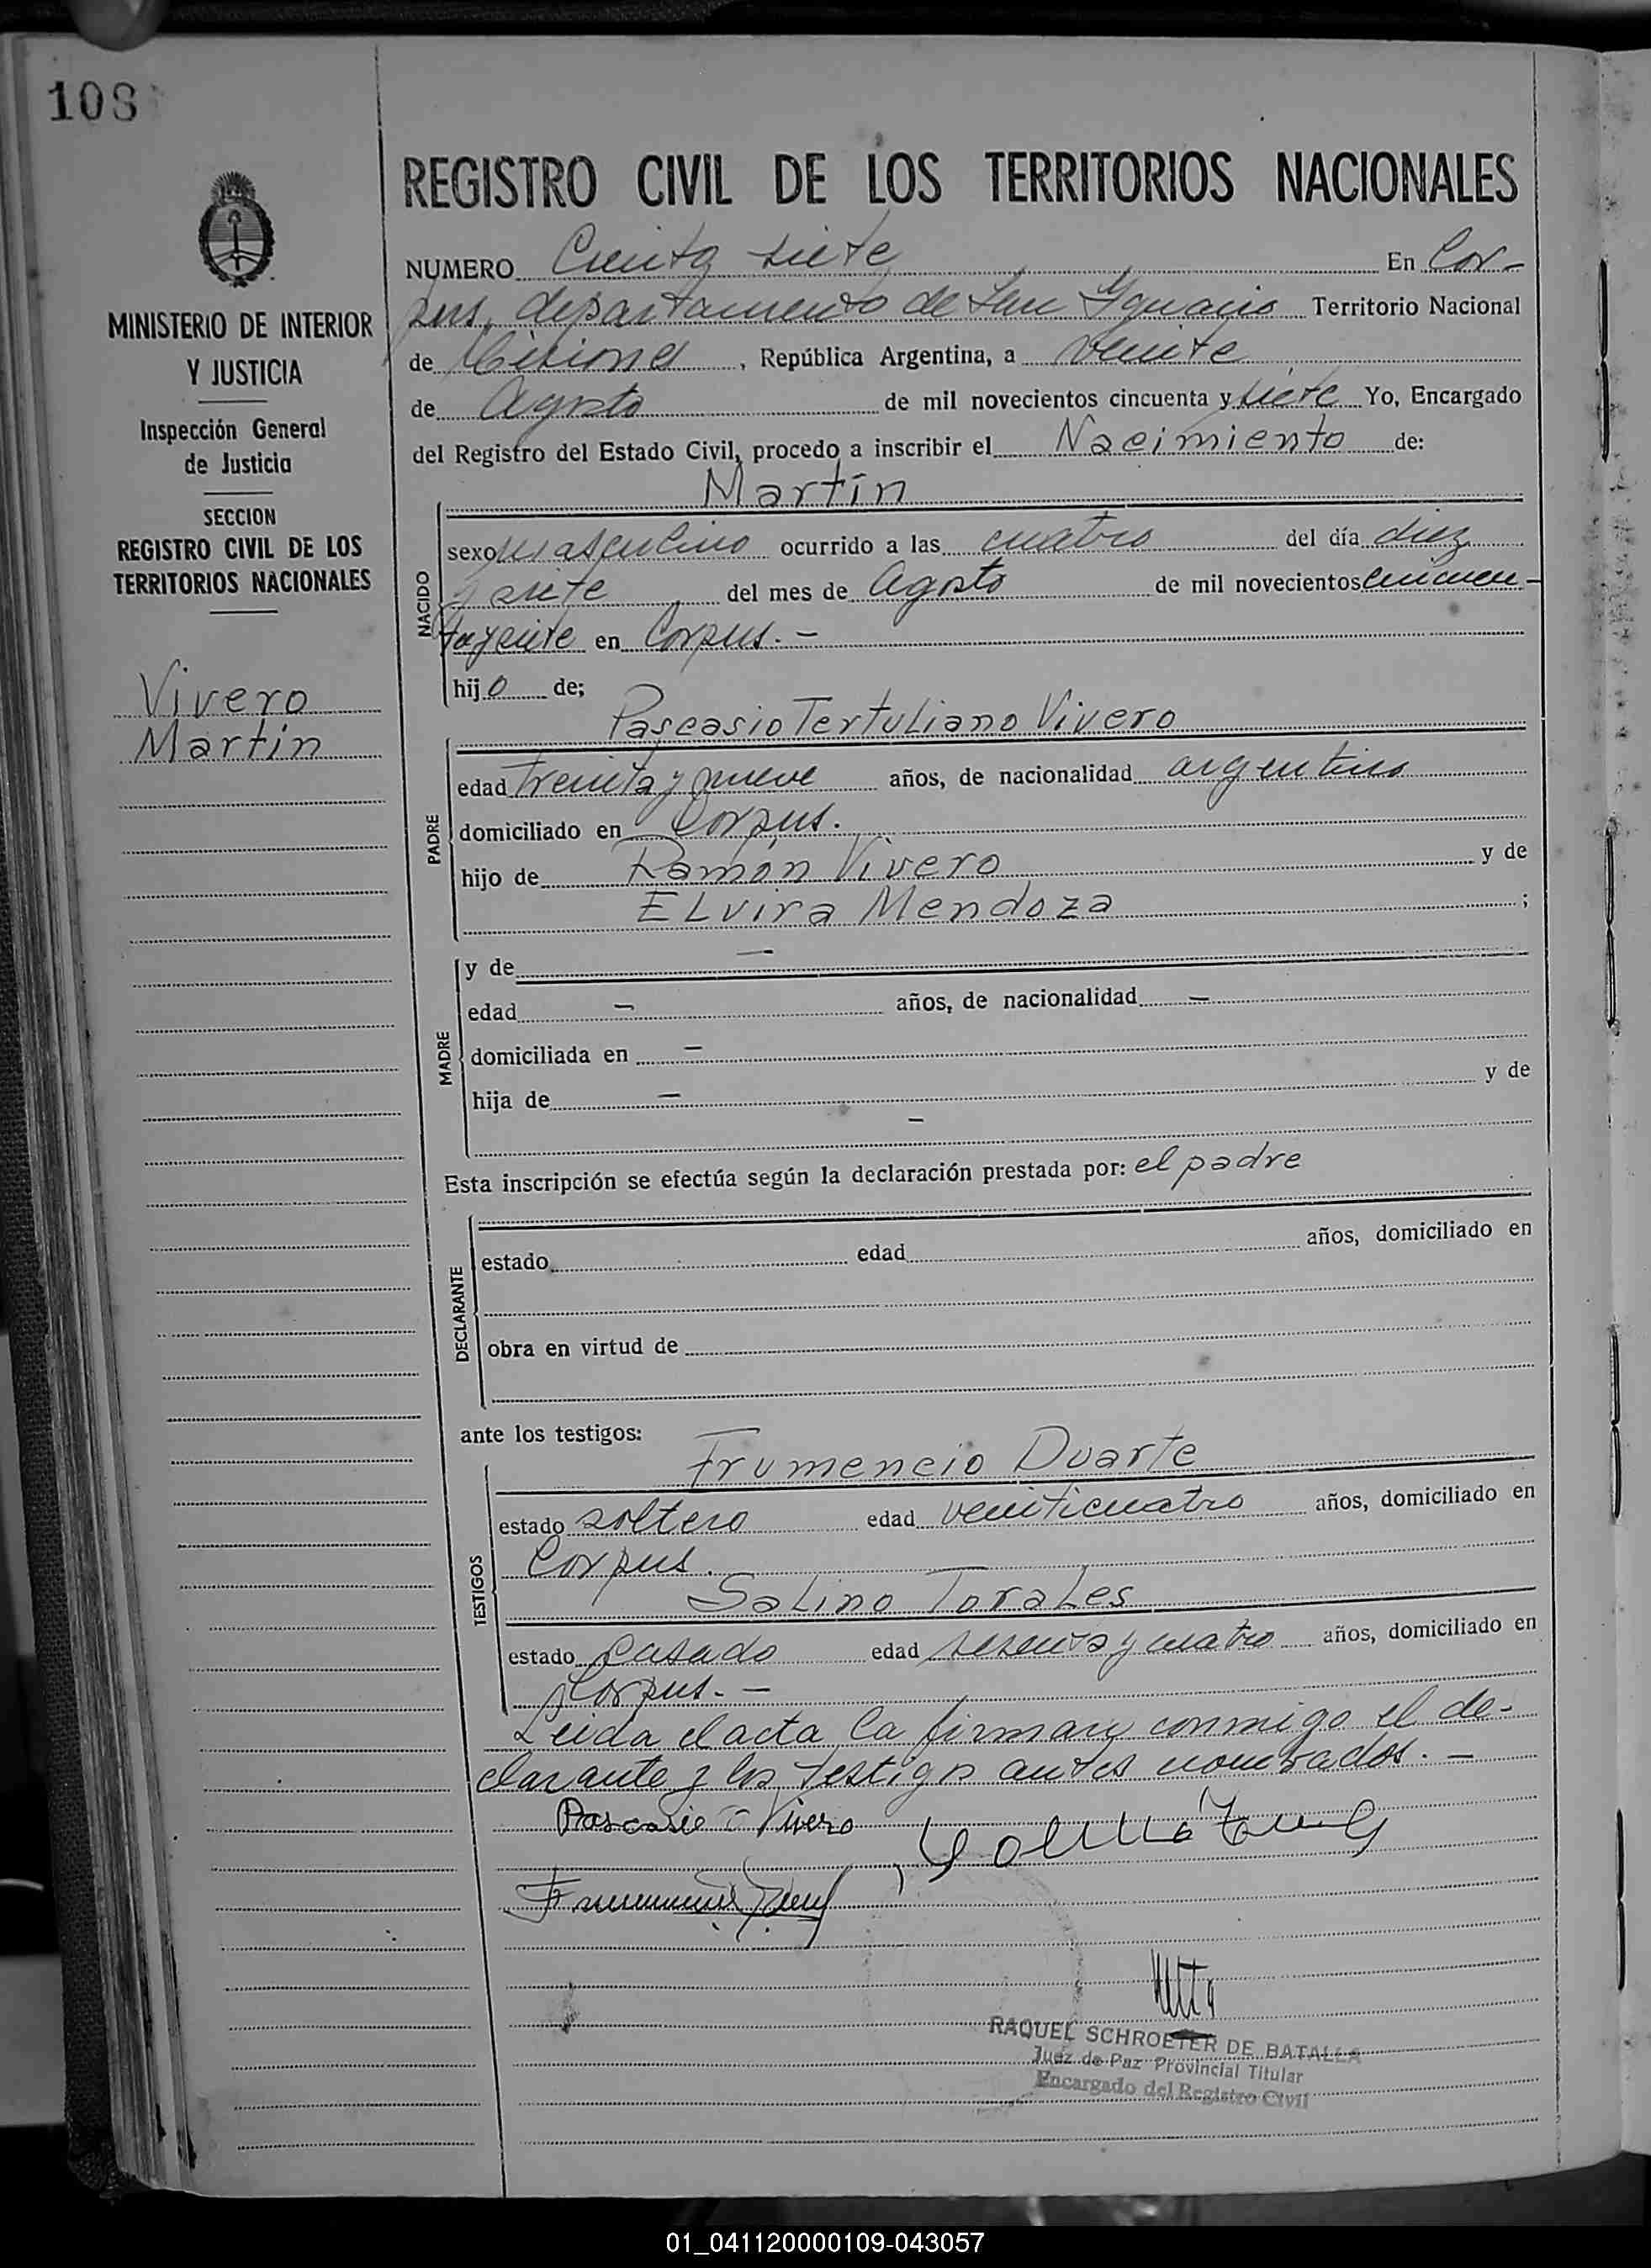 108
REGISTRO CIVIL DE LOS TERRITORIOS NACIONALES
MINISTERIO DE INTERIOR
Y JUSTICIA
Inspección General
de Justicia
SECCION
REGISTRO CIVIL DE LOS
TERRITORIOS NACIONALES
Vivero
Martin
NUMERO Ciento siete En Cor-
pus, departamento de San Ygnacio Territorio Nacional
de Misiones, República Argentina, a veinte
de Agosto de mil novecientos cincuenta y siete Yo, Encargado
del Registro del Estado Civil, procedo a inscribir el Nacimiento de:
Martín
NACIDO
sexo masculino ocurrido a las cuatro del día diez
y siete del mes de Agosto de mil novecientos cincuen-
ta y siete en Corpus.-
hijo de;
Pascasio Tertuliano Vivero
PADRE
edad treinta y nueve años, de nacionalidad argentino
domiciliado en Corpus.
hijo de Ramón Vivero y de
Elvira Mendoza ;
MADRE
y de —
edad — años, de nacionalidad —
domiciliada en —
hija de — y de
—
Esta inscripción se efectúa según la declaración prestada por: el padre
DECLARANTE
estado edad años, domiciliado en
obra en virtud de
ante los testigos:
Frumencio Duarte
TESTIGOS
estado soltero edad veinticuatro años, domiciliado en
Corpus.
Salino Torales
estado casado edad sesenta y cuatro años, domiciliado en
Corpus.-
Leida el acta la firman conmigo el de-
clarante y los testigos antes nombrados.-
Pascasio T Vivero
RAQUEL SCHROETER DE BATALLA
Juez de Paz Provincial Titular
Encargado del Registro Civil
01_041120000109-043057